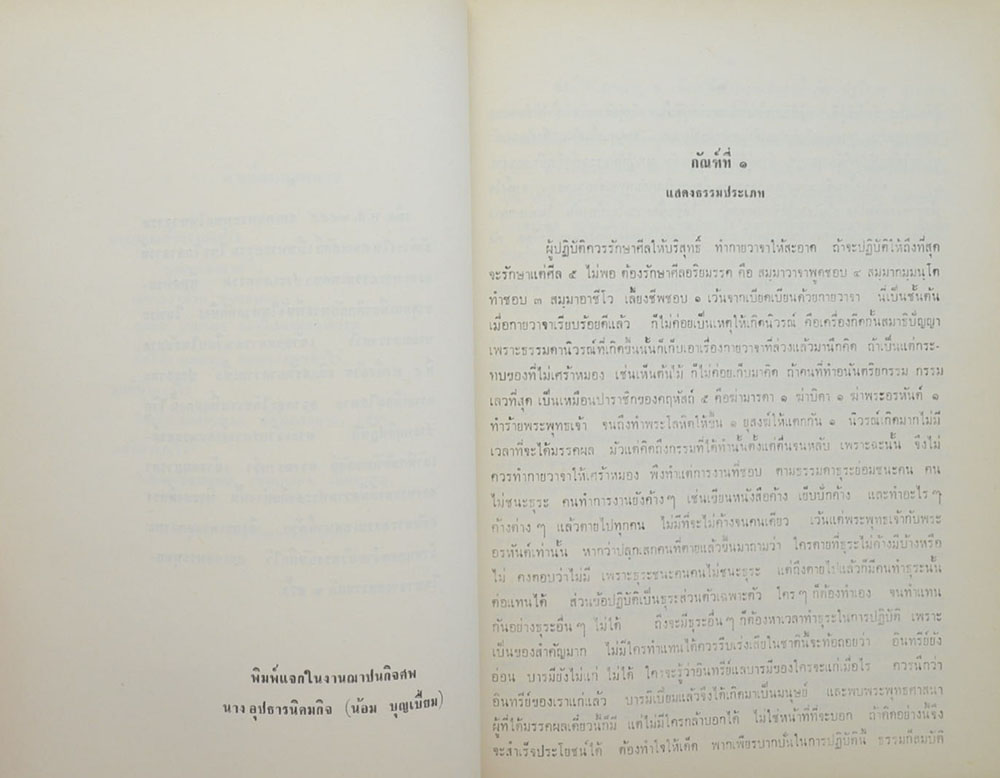 พิมพ์แจกในงานฌาปนกิจศพ
นาง อุปธารนิคมกิจ (น้อม บุญเบี้ยม)
กัณฑ์ที่ ๑
แสดงธรรมประเภท
ผู้ปฏิบัติควรรักษาศีลให้บริสุทธิ์ ทำกายวาจาให้สะอาด ถ้าจะปฏิบัติให้ถึงที่สุด
จะรักษาแต่ศีล ๕ ไม่พอ ต้องรักษาศีลอริยมรรค คือ สมฺมาวาจาพูดชอบ ๔ สมฺมากมฺมนฺโต
ทำชอบ ๓ สมฺมาอาชีโว เลี้ยงชีพชอบ ๑ เว้นจากเบียดเบียนด้วยกายวาจา นี่เป็นชั้นต้น
เมื่อกายวาจาเรียบร้อยดีแล้ว ก็ไม่ค่อยเป็นเหตุให้เกิดนิวรณ์ คือเครื่องกีดกั้นสมาธิปัญญา
เพราะธรรมดานิวรณ์ที่เกิดขึ้นนั้นก็เก็บเอาเรื่องกายวาจาที่ล่วงแล้วมานึกคิด ถ้าเป็นแต่กระ-
ทบของที่ไม่เศร้าหมอง เช่นเห็นต้นไม้ ก็ไม่ค่อยเก็บมาคิด ถ้าคนที่ทำอนันตริยกรรม กรรม
เลวที่สุด เป็นเหมือนปาราชิกของคฤหัสถ์ ๕ คือฆ่ามารดา ๑ ฆ่าบิดา ๑ ฆ่าพระอรหันต์ ๑
ทำร้ายพระพุทธเจ้า จนถึงทำพระโลหิตให้ขึ้น ๑ ยุสงฆ์ให้แตกกัน ๑ นิวรณ์เกิดมากไม่มี
เวลาที่จะได้มรรคผล มัวแต่คิดถึงกรรมที่ได้ทำนั้นตั้งแต่ตื่นจนหลับ เพราะฉะนั้น จึงไม่
ควรทำกายวาจาให้เศร้าหมอง พึงทำแต่การงานที่ชอบ ตามธรรมดาธุระย่อมชนะคน คน
ไม่ชนะธุระ คนทำการงานยังค้างๆ เช่นเขียนหนังสือค้าง เย็บปักค้าง และทำอะไรๆ
ค้างต่างๆ แล้วตายไปทุกคน ไม่มีที่จะไม่ค้างจนคนเดียว เว้นแต่พระพุทธเจ้ากับพระ
อรหันต์เท่านั้น หากว่าปลุกเสกคนที่ตายแล้วขึ้นมาถามว่า ใครตายที่ธุระไม่ค้างมีบ้างหรือ
ไม่ คงตอบว่าไม่มี เพราะธุระชนะคนคนไม่ชนะธุระ แต่ถึงตายไปแล้วก็มีคนทำธุระนั้น
ต่อแทนได้ ส่วนข้อปฏิบัติเป็นธุระส่วนตัวเฉพาะตัว ใครๆ ก็ต้องทำเอง จนทำแทน
กันอย่างธุระอื่นๆ ไม่ได้ ถึงจะมีธุระอื่นๆ ก็ต้องหาเวลาทำธุระในการปฏิบัติ เพราะ
เป็นของสำคัญมาก ไม่มีใครทำแทนได้ควรรีบเร่งเสียในชาตินี้จะท้อถอยว่า อินทรีย์ยัง
อ่อน บารมียังไม่แก่ ไม่ได้ ใครจะรู้ว่าอินทรีย์และบารมีของใครจะแก่เมื่อไร ควรนึกว่า
อินทรีย์ของเราแก่แล้ว บารมีเปี่ยมแล้วจึงได้เกิดมาเป็นมนุษย์ และพบพระพุทธศาสนา
ผู้ที่ได้มรรคผลเดี๋ยวนี้ก็มี แต่ไม่มีใครกล้าบอกได้ ไม่ใช่หน้าที่ที่จะบอก ถ้าคิดอย่างนี้จึง
จะสำเร็จประโยชน์ได้ ต้องทำใจให้เด็ด พากเพียรบากบั่นในการปฏิบัตินี้ ธรรมก็สมบัติ